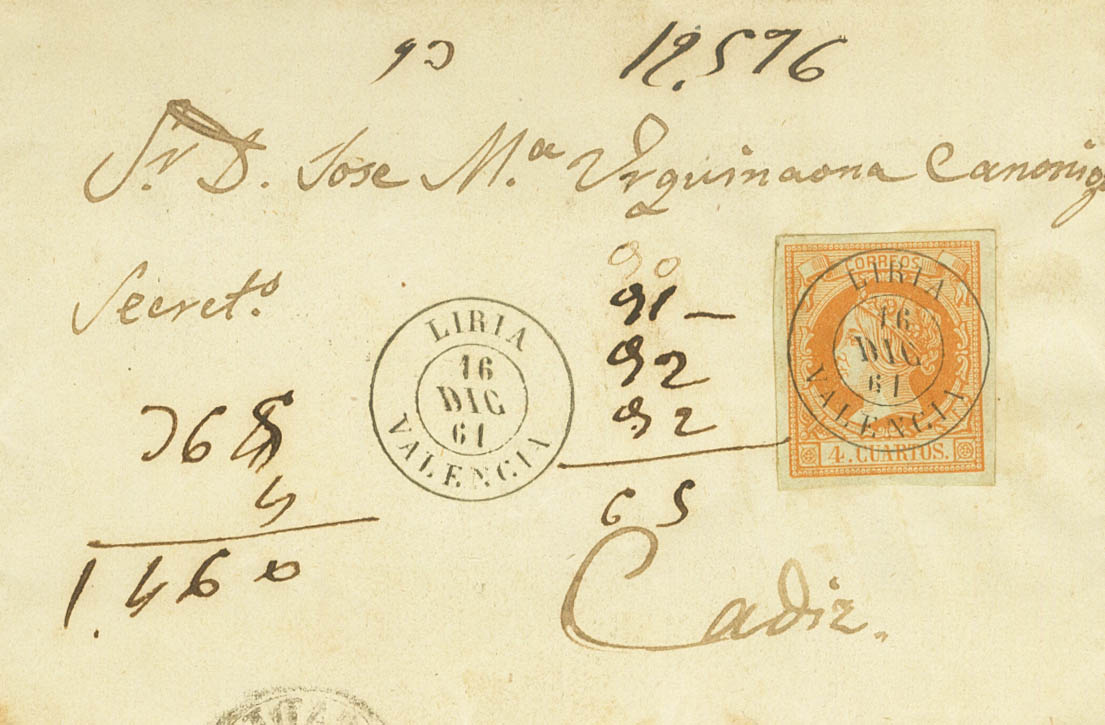 90 19.576
Sr. D. Jose M.ª Urquinaona Canonigo
Secret.º
90
91 -
92
92
65
368
4
1.460
LIRIA
16
DIC
61
VALENCIA
CORREOS
4. CUARTOS.
LIRIA
16
DIC
61
VALENCIA
Cadiz.